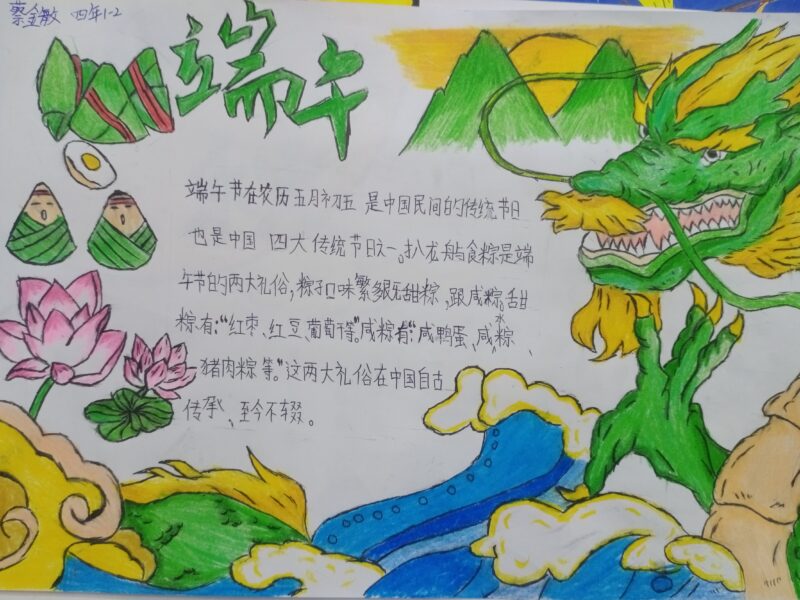 蔡金敏 四年1-2
端午
端午节在农历五月初五 是中国民间的传统节日
也是中国 四大传统节日之一。扒龙舟与食粽是端
午节的两大礼俗,粽子口味繁多既有甜粽,跟咸粽。甜
粽有:“红枣、红豆、葡萄干等”。咸粽有:“咸鸭蛋、咸水粽、
猪肉粽 等。”这两大礼俗在中国自古
传承、至今不辍。